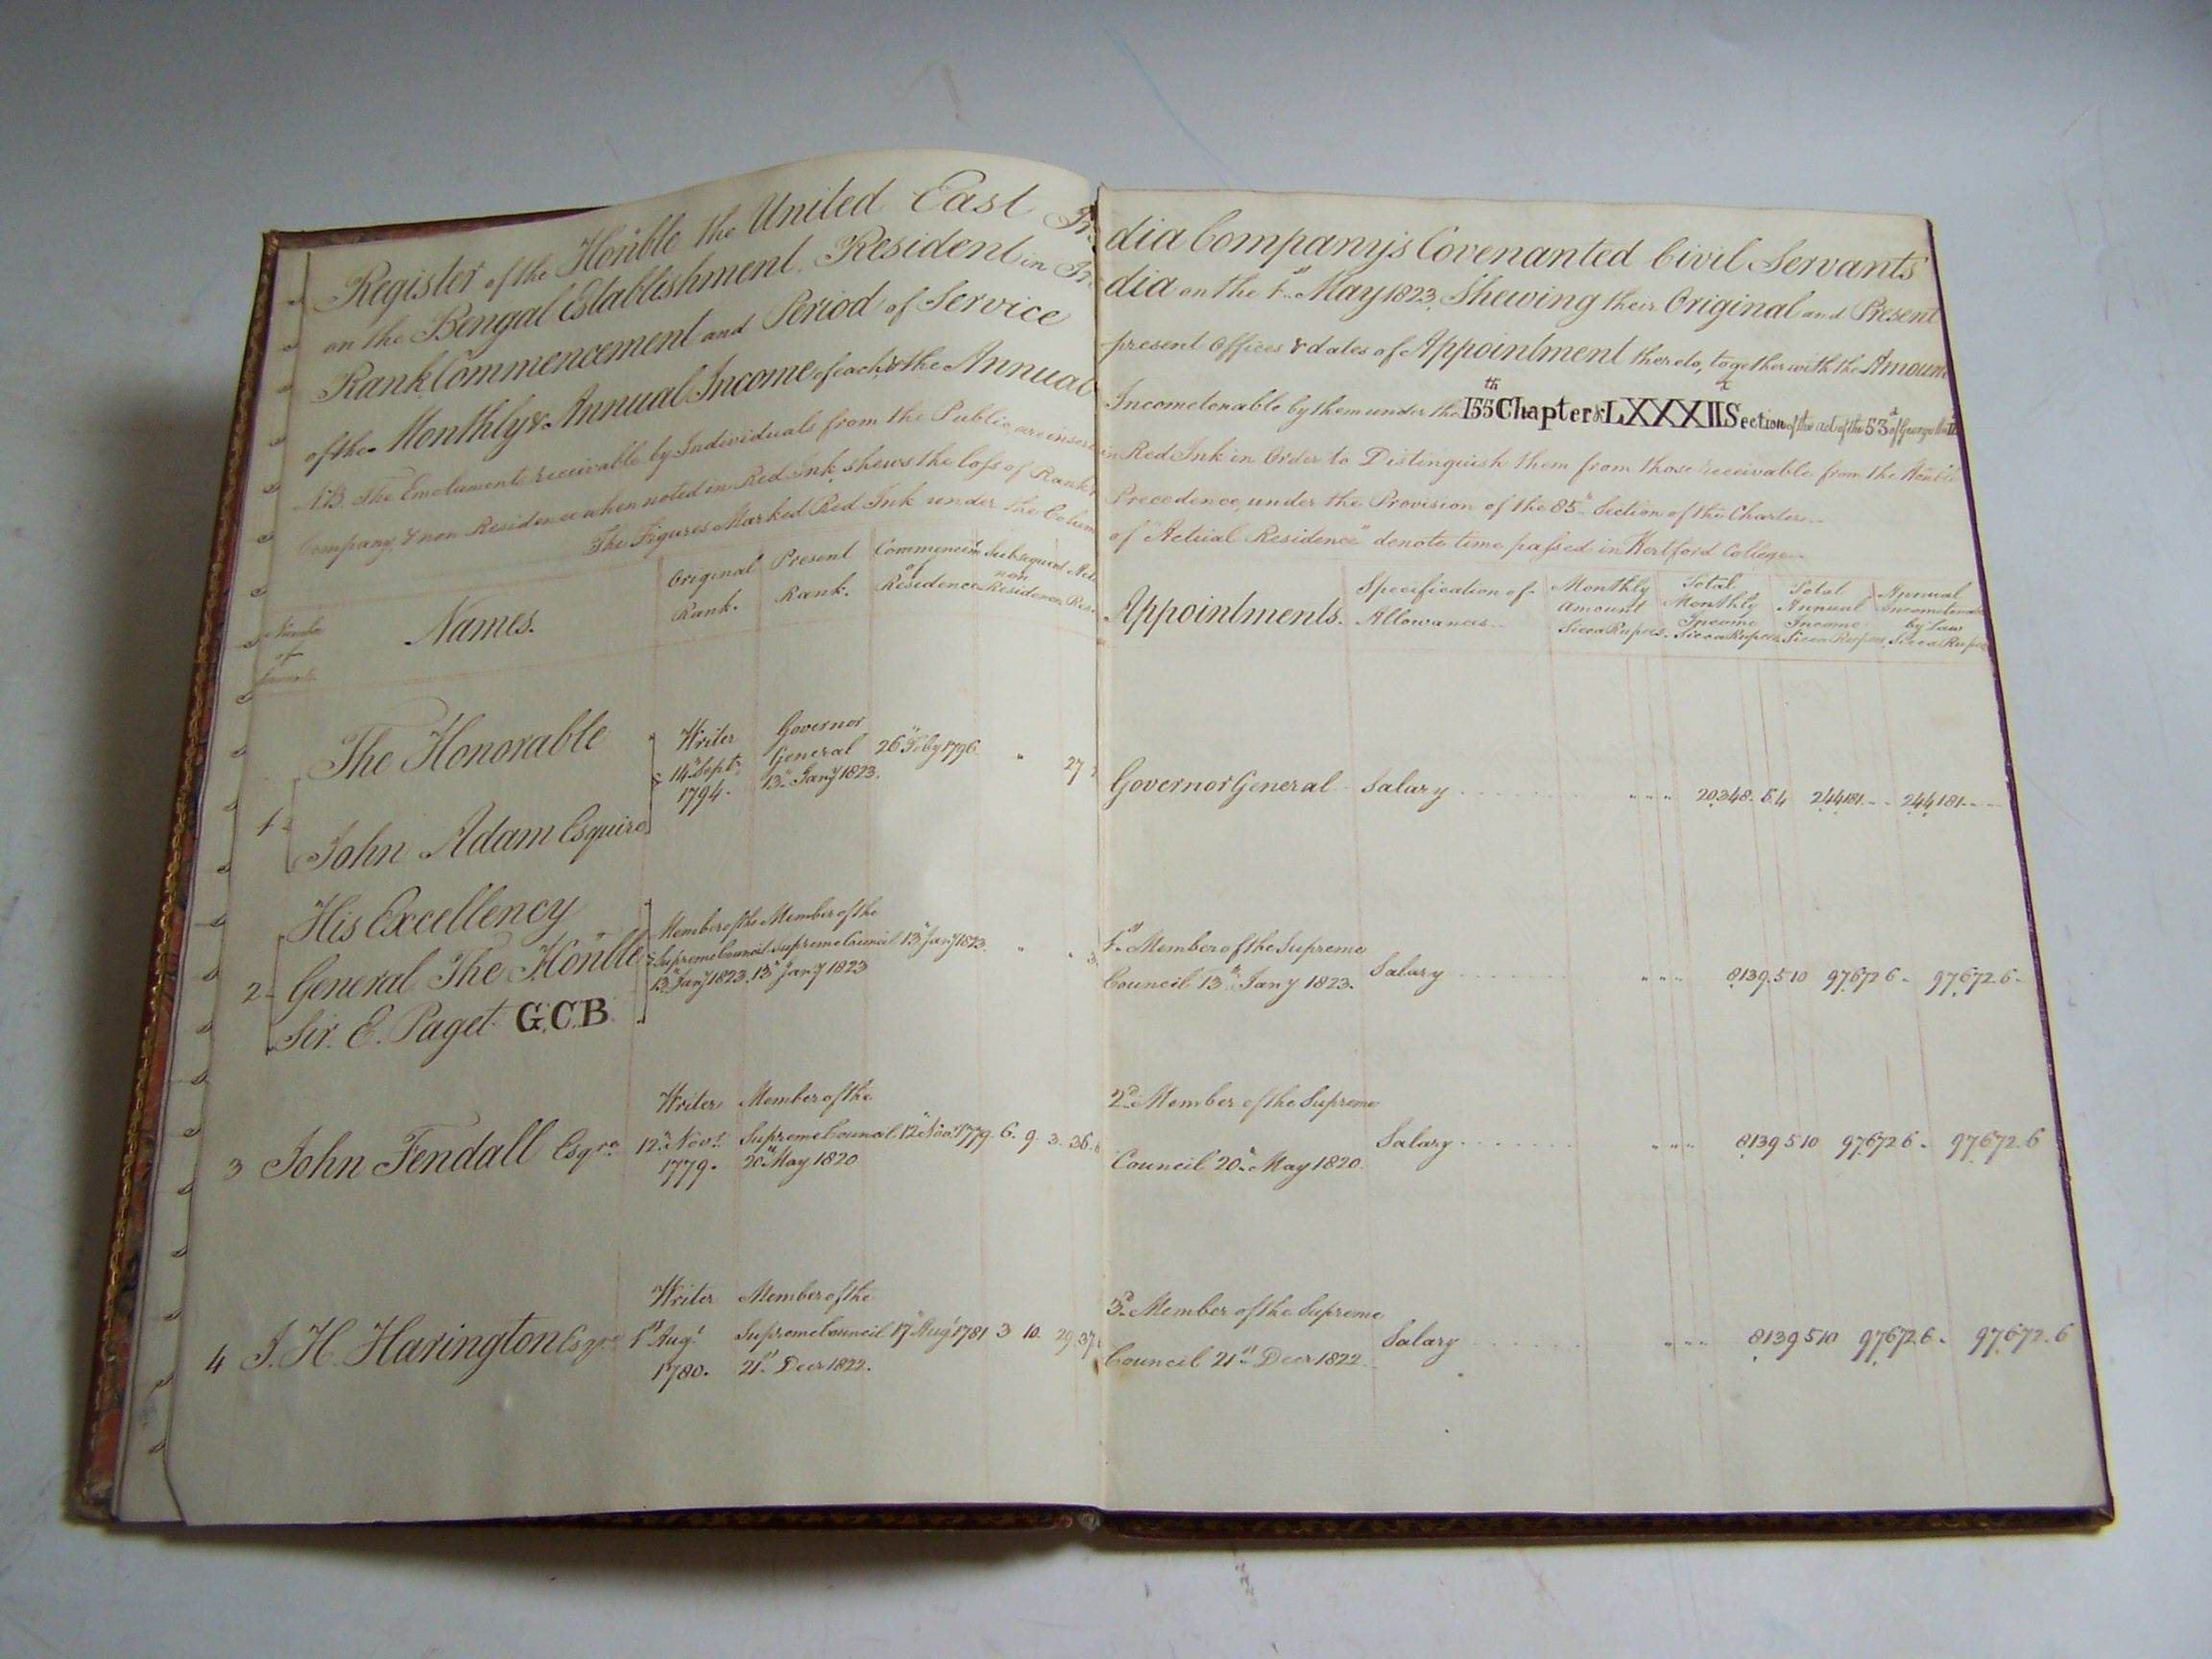 Register of the Honble the United East In
on the Bengal Establishment. Resident in In
Rank, Commencement and Period of Service
of the Monthly & Annual Income of each, & the Annual
N.B. The Emoluments receivable by Individuals from the Public, are insert
Company, & non Residence when noted in Red Ink, shews the loss of Rank &
The Figures Marked Red Ink under the Colum
Number of Servants
Names.
Original Rank.
Present Rank.
Commencemt of Residence
Subsequent non Residence
1
The Honorable
John Adam Esquire
Writer
14th Septr
1794.
Governor
General
13th Jany 1823.
26th Feby 1796
27
2
His Excellency
General The Honble
Sir. E. Paget G.C.B.
Member of the
Supreme Council
13th Jany 1823.
Member of the
Supreme Council
13th Jany 1823
13th Jany 1823.
3
3 John Fendall Esqre
Writer
12th Novr
1779.
Member of the
Supreme Council
20th May 1820
12th Novr 1779. 6. 9. 3. 36.
4 J. H. Harington Esqre
Writer
1st Augt
1780.
Member of the
Supreme Council
21st Decr 1822.
17th Augt 1781 3 10. 29. 37.
dia Company's Covenanted Civil Servants
dia on the 1st May 1823, Shewing their Original and Present
present Offices & dates of Appointment thereto, together with the Amount
Income tenable by them under the 155th Chapter & LXXXII Section of the act of the 53d of George the III
in Red Ink in Order to Distinguish them from those receivable from the Honble
Precedence, under the Provision of the 85th Section of the Charter
of "Actual Residence" denote time passed in Hertford College.
Appointments.
Specification of Allowances
Monthly Amount Sicca Rupees.
Total Monthly Income Sicca Rupees
Total Annual Income Sicca Rupees
Annual Income tenable by Law Sicca Rupees
Governor General Salary 20,348. 5.4 2,44,181. 2,44,181.
1st Member of the Supreme
Council 13th Jany 1823. Salary 8139. 5 10 97,672 6 97,672. 6
2d Member of the Supreme
Council 20th May 1820. Salary 8139 5 10 97,672 6 97,672. 6
3d Member of the Supreme
Council 21st Decr 1822 Salary 8139 5 10 97,672. 6 97,672. 6